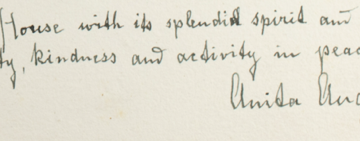 House with its splendid spirit and
ty, kindness and activity in peac
Anita Anc